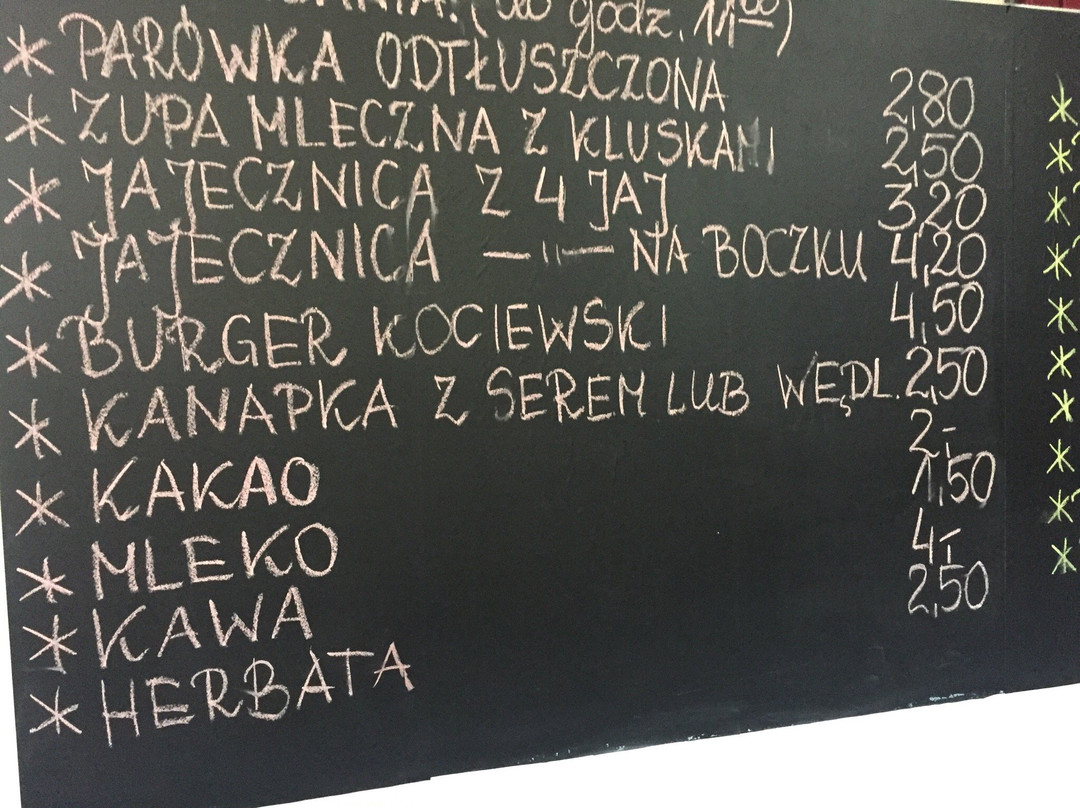 (do godz. 11⁰⁰)
* PARÓWKA ODTŁUSZCZONA 2,80
* ZUPA MLECZNA Z KLUSKAMI 2,50
* JAJECZNICA Z 4 JAJ 3,20
* JAJECZNICA —"— NA BOCZKU 4,20
* BURGER KOCIEWSKI 4,50
* KANAPKA Z SEREM LUB WĘDL. 2,50
* KAKAO 2,-
* MLEKO 1,50
* KAWA 4,-
* HERBATA 2,50